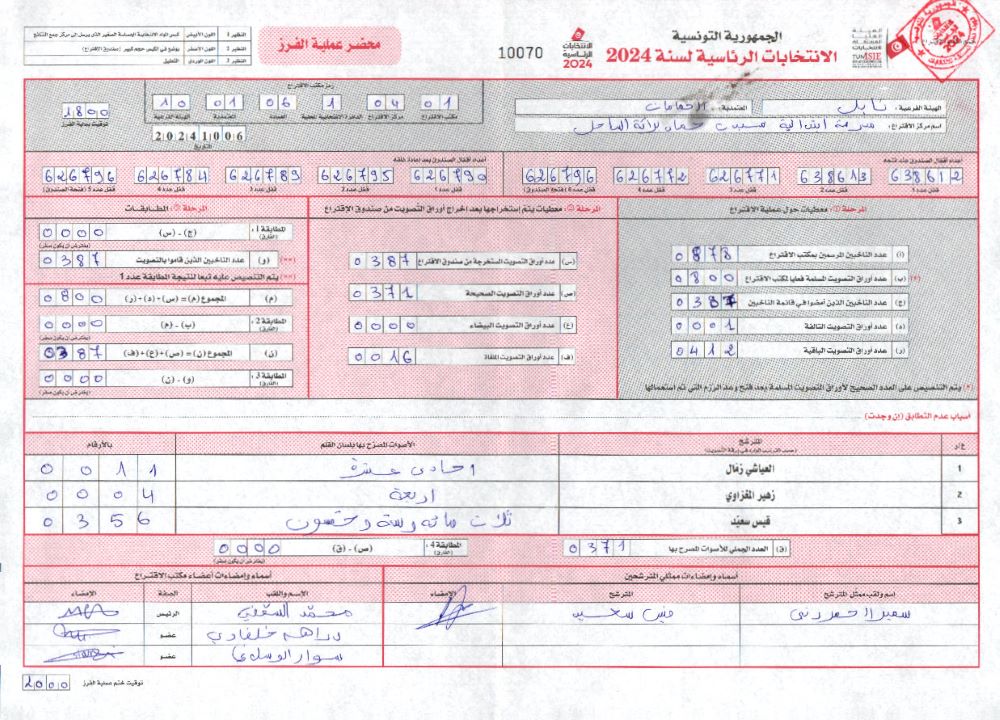 الجمهورية التونسية
الانتخابات الرئاسية لسنة 2024
الانتخابات الرئاسية 2024
10070
محضر عملية الفرز
النظير 1 اللون الأبيض
النظير 2 اللون الأصفر يوضع في الكيس حجم كبير (صندوق الاقتراع)
النظير 3 اللون الوردي التعليق
الهيئة الفرعية: نابل
المعتمدية: الحمامات
اسم مركز الاقتراع:
رمز مكتب الاقتراع
01 04 1 06 01 10
مكتب الاقتراع مركز الاقتراع الدائرة الانتخابية المحلية العمادة المعتمدية الهيئة الفرعية
20241006
التاريخ
1800
توقيت بداية الفرز
أعداد أقفال الصندوق عند فتحه
638612 638613 626771 626772 626796
قفل عدد 1 قفل عدد 2 قفل عدد 3 قفل عدد 4 قفل عدد 5 (فتحة الصندوق)
أعداد أقفال الصندوق بعد إعادة غلقه
626790 626795 626789 626784 626796
قفل عدد 1 قفل عدد 2 قفل عدد 3 قفل عدد 4 قفل عدد 5 (فتحة الصندوق)
المرحلة ①: معطيات حول عملية الاقتراع
(أ) عدد الناخبين المرسمين بمكتب الاقتراع 0878
(ب) عدد أوراق التصويت المسلمة فعليا لمكتب الاقتراع 0800
(ج) عدد الناخبين الذين أمضوا في قائمة الناخبين 0387
(د) عدد أوراق التصويت التالفة 0001
(ر) عدد أوراق التصويت الباقية 0412
(*) يتم التنصيص على العدد الصحيح لأوراق التصويت المسلمة بعد فتح وعد الرزم التي تم استعمالها
المرحلة ②: معطيات يتم إستخراجها بعد اخراج أوراق التصويت من صندوق الاقتراع
(س) عدد أوراق التصويت المستخرجة من صندوق الاقتراع 0387
(ص) عدد أوراق التصويت الصحيحة 0371
(ع) عدد أوراق التصويت البيضاء 0000
(ف) عدد أوراق التصويت الملغاة 0016
المرحلة ③: المطابقات
المطابقة 1: (الفارق) (ج) - (س) 0000
(يفترض أن يكون صفر)
(**) (و) عدد الناخبين الذين قاموا بالتصويت 0387
(**) يتم التنصيص عليه تبعا لنتيجة المطابقة عدد 1
(م) المجموع (م) = (س) + (د) + (ر) 0800
المطابقة 2: (الفارق) (ب) - (م) 0000
(يفترض أن يكون صفر)
(ن) المجموع (ن) = (ص) + (ع) + (ف) 0387
المطابقة 3: (الفارق) (و) - (ن) 0000
(يفترض أن يكون صفر)
أسباب عدم التطابق (إن وجدت)
ع/ر المترشح الأصوات المصرح بها بلسان القلم بالأرقام
(حسب الترتيب الوارد في ورقة التصويت)
1 العياشي زمال احدى عشرة 0011
2 زهير المغزاوي اربعة 0004
3 قيس سعيّد ثلاث مائة وستة وخمسون 0356
(ق) العدد الجملي للأصوات المصرح بها 0371
المطابقة 4: (الفارق) (ص) - (ق) 0000
(يفترض أن يكون صفر)
أسماء وإمضاءات ممثلي المترشحين
اسم ولقب ممثل المترشح المترشح الإمضاء
قيس سعيد
أسماء وإمضاءات أعضاء مكتب الاقتراع
الإسم واللقب الصفة الإمضاء
الرئيس
عضو
عضو
2000 توقيت ختم عملية الفرز